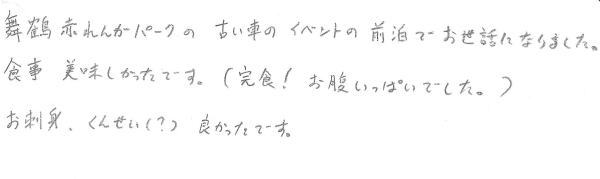 舞鶴赤れんがパークの 古い車の イベントの 前泊で お世話になりました。
食事 美味しかったです。(完食! お腹いっぱいでした。)
お刺身、くんせい(?) 良かったです。